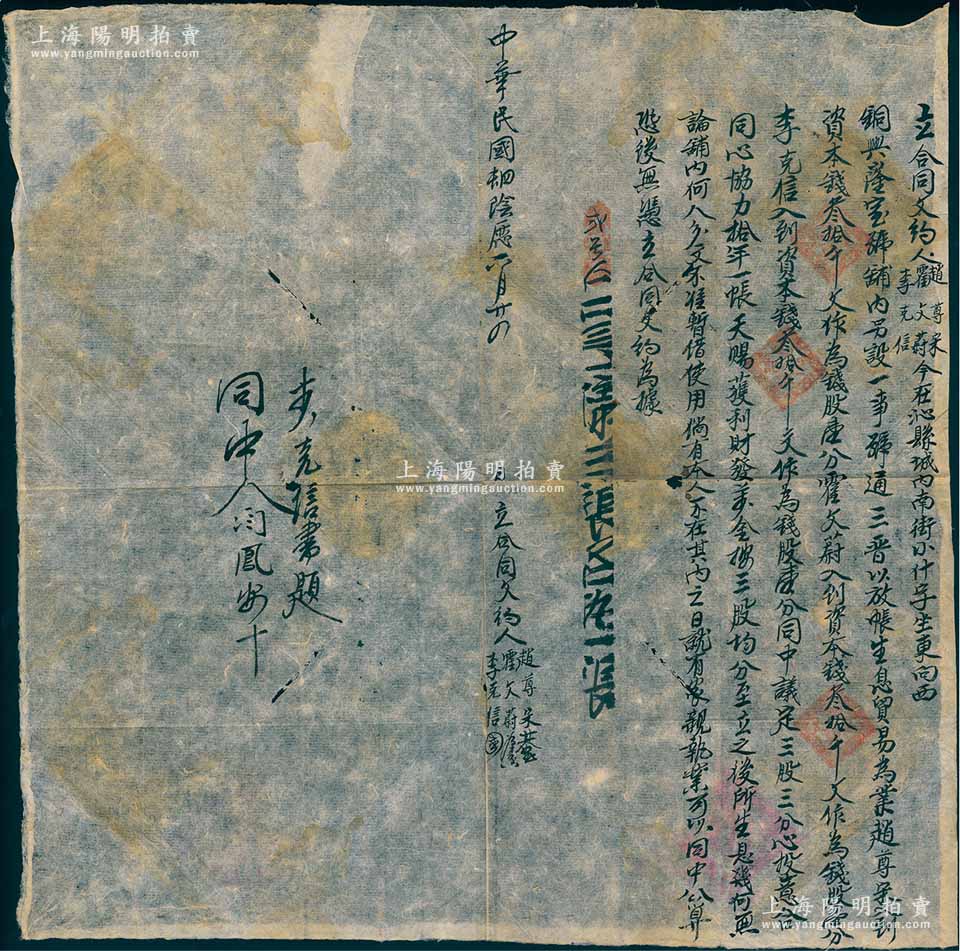 上海陽明拍賣
www.yangmingauction.com
立合同文約人趙尊宋霍文蔚李克信今在沁縣城內南街小什字坐東向西
銅興隆寶號舖內另設一事號通三晉以放帳生息貿易為業趙尊宋入到
資本錢叁拾千文作為錢股壹分霍文蔚入到資本錢叁拾千文作為錢股壹分
李克信入到資本錢叁拾千文作為錢股壹分同中議定三股三分心投意合
同心協力拾年一帳天賜獲利財發萬金按三股均分至立之後所生息幾何無
論舖內何人分文不准暂借使用倘有本人不在其內之日就有家親執業可以同中公算
恐後無憑立合同文約為據
中華民國 陰曆 月廿
立合同文約人趙尊宋霍文蔚李克信
李克信書題
同中人閆鳳安十
上海陽明拍賣
www.yangmingauction.com
上海陽明拍賣
www.yangmingauction.com